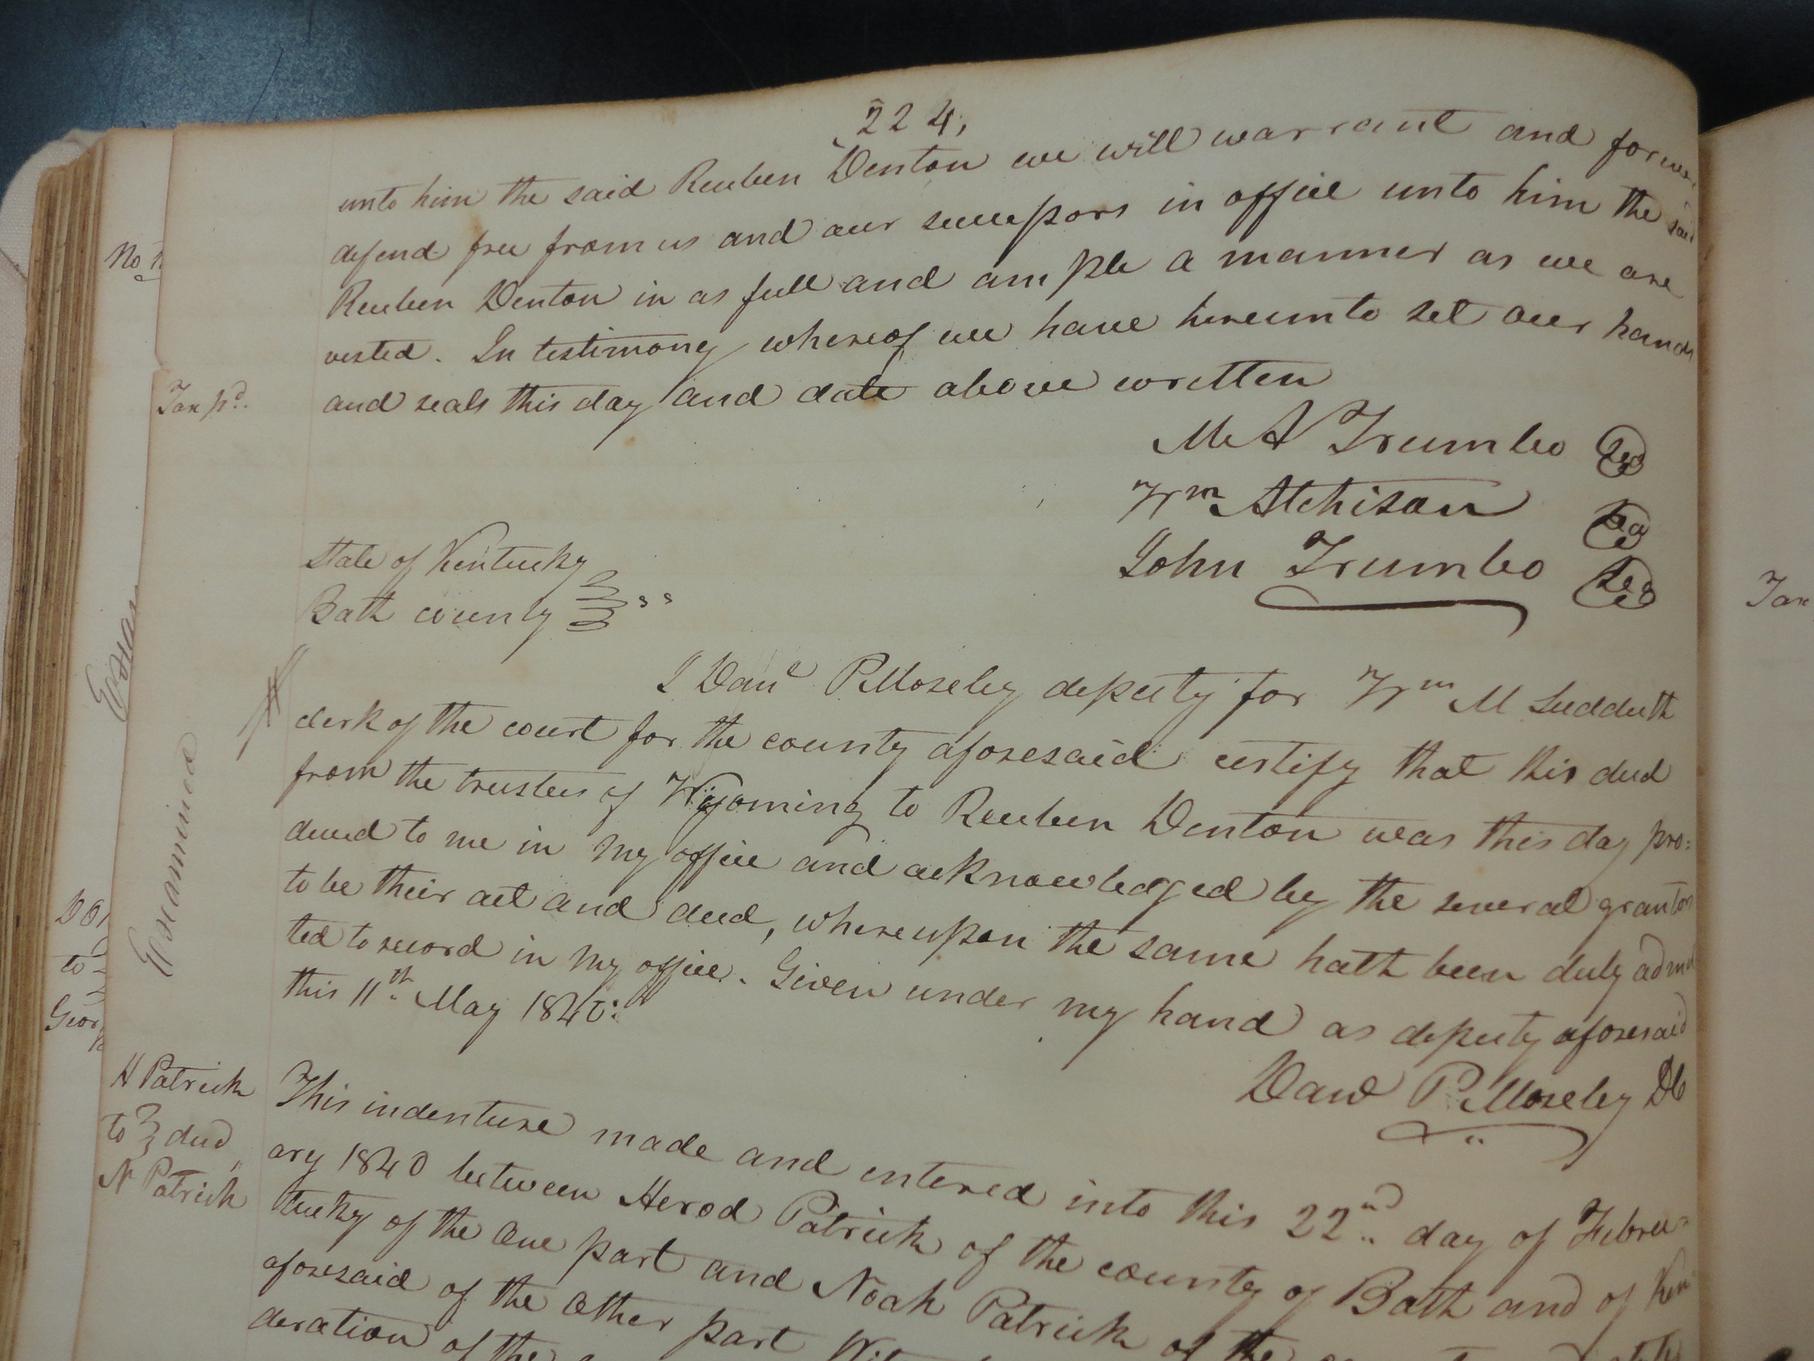 224,
unto him the said Reuben Denton we will warrant and forever
defend free from us and our successors in office unto him the said
Reuben Denton in as full and ample a manner as we are
vested. In testimony whereof we have hereunto set our hands
Tax pd.
and seals this day and date above written
M A Trumbo
Wm Atchison
John Trumbo
State of Kentucky
Bath county
I Danl P. Moseley deputy for Wm M Sudduth
clerk of the court for the county aforesaid certify that this deed
from the trustees of Wyoming to Reuben Denton was this day pro:
duced to me in my office and acknowledged by the several grantors
to be their act and deed, whereupon the same hath been duly admit
ted to record in my office. Given under my hand as deputy aforesaid
this 11th May 1840:
Danl P. Moseley DC
Examined
H Patrick
to deed
N Patrick
This indenture made and entered into this 22nd day of Febru=
ary 1840 between Herod Patrick of the county of Bath and of Ken
tucky of the one part and Noah Patrick of the
aforesaid of the other part
deration of the
No
to
Geor
Tax